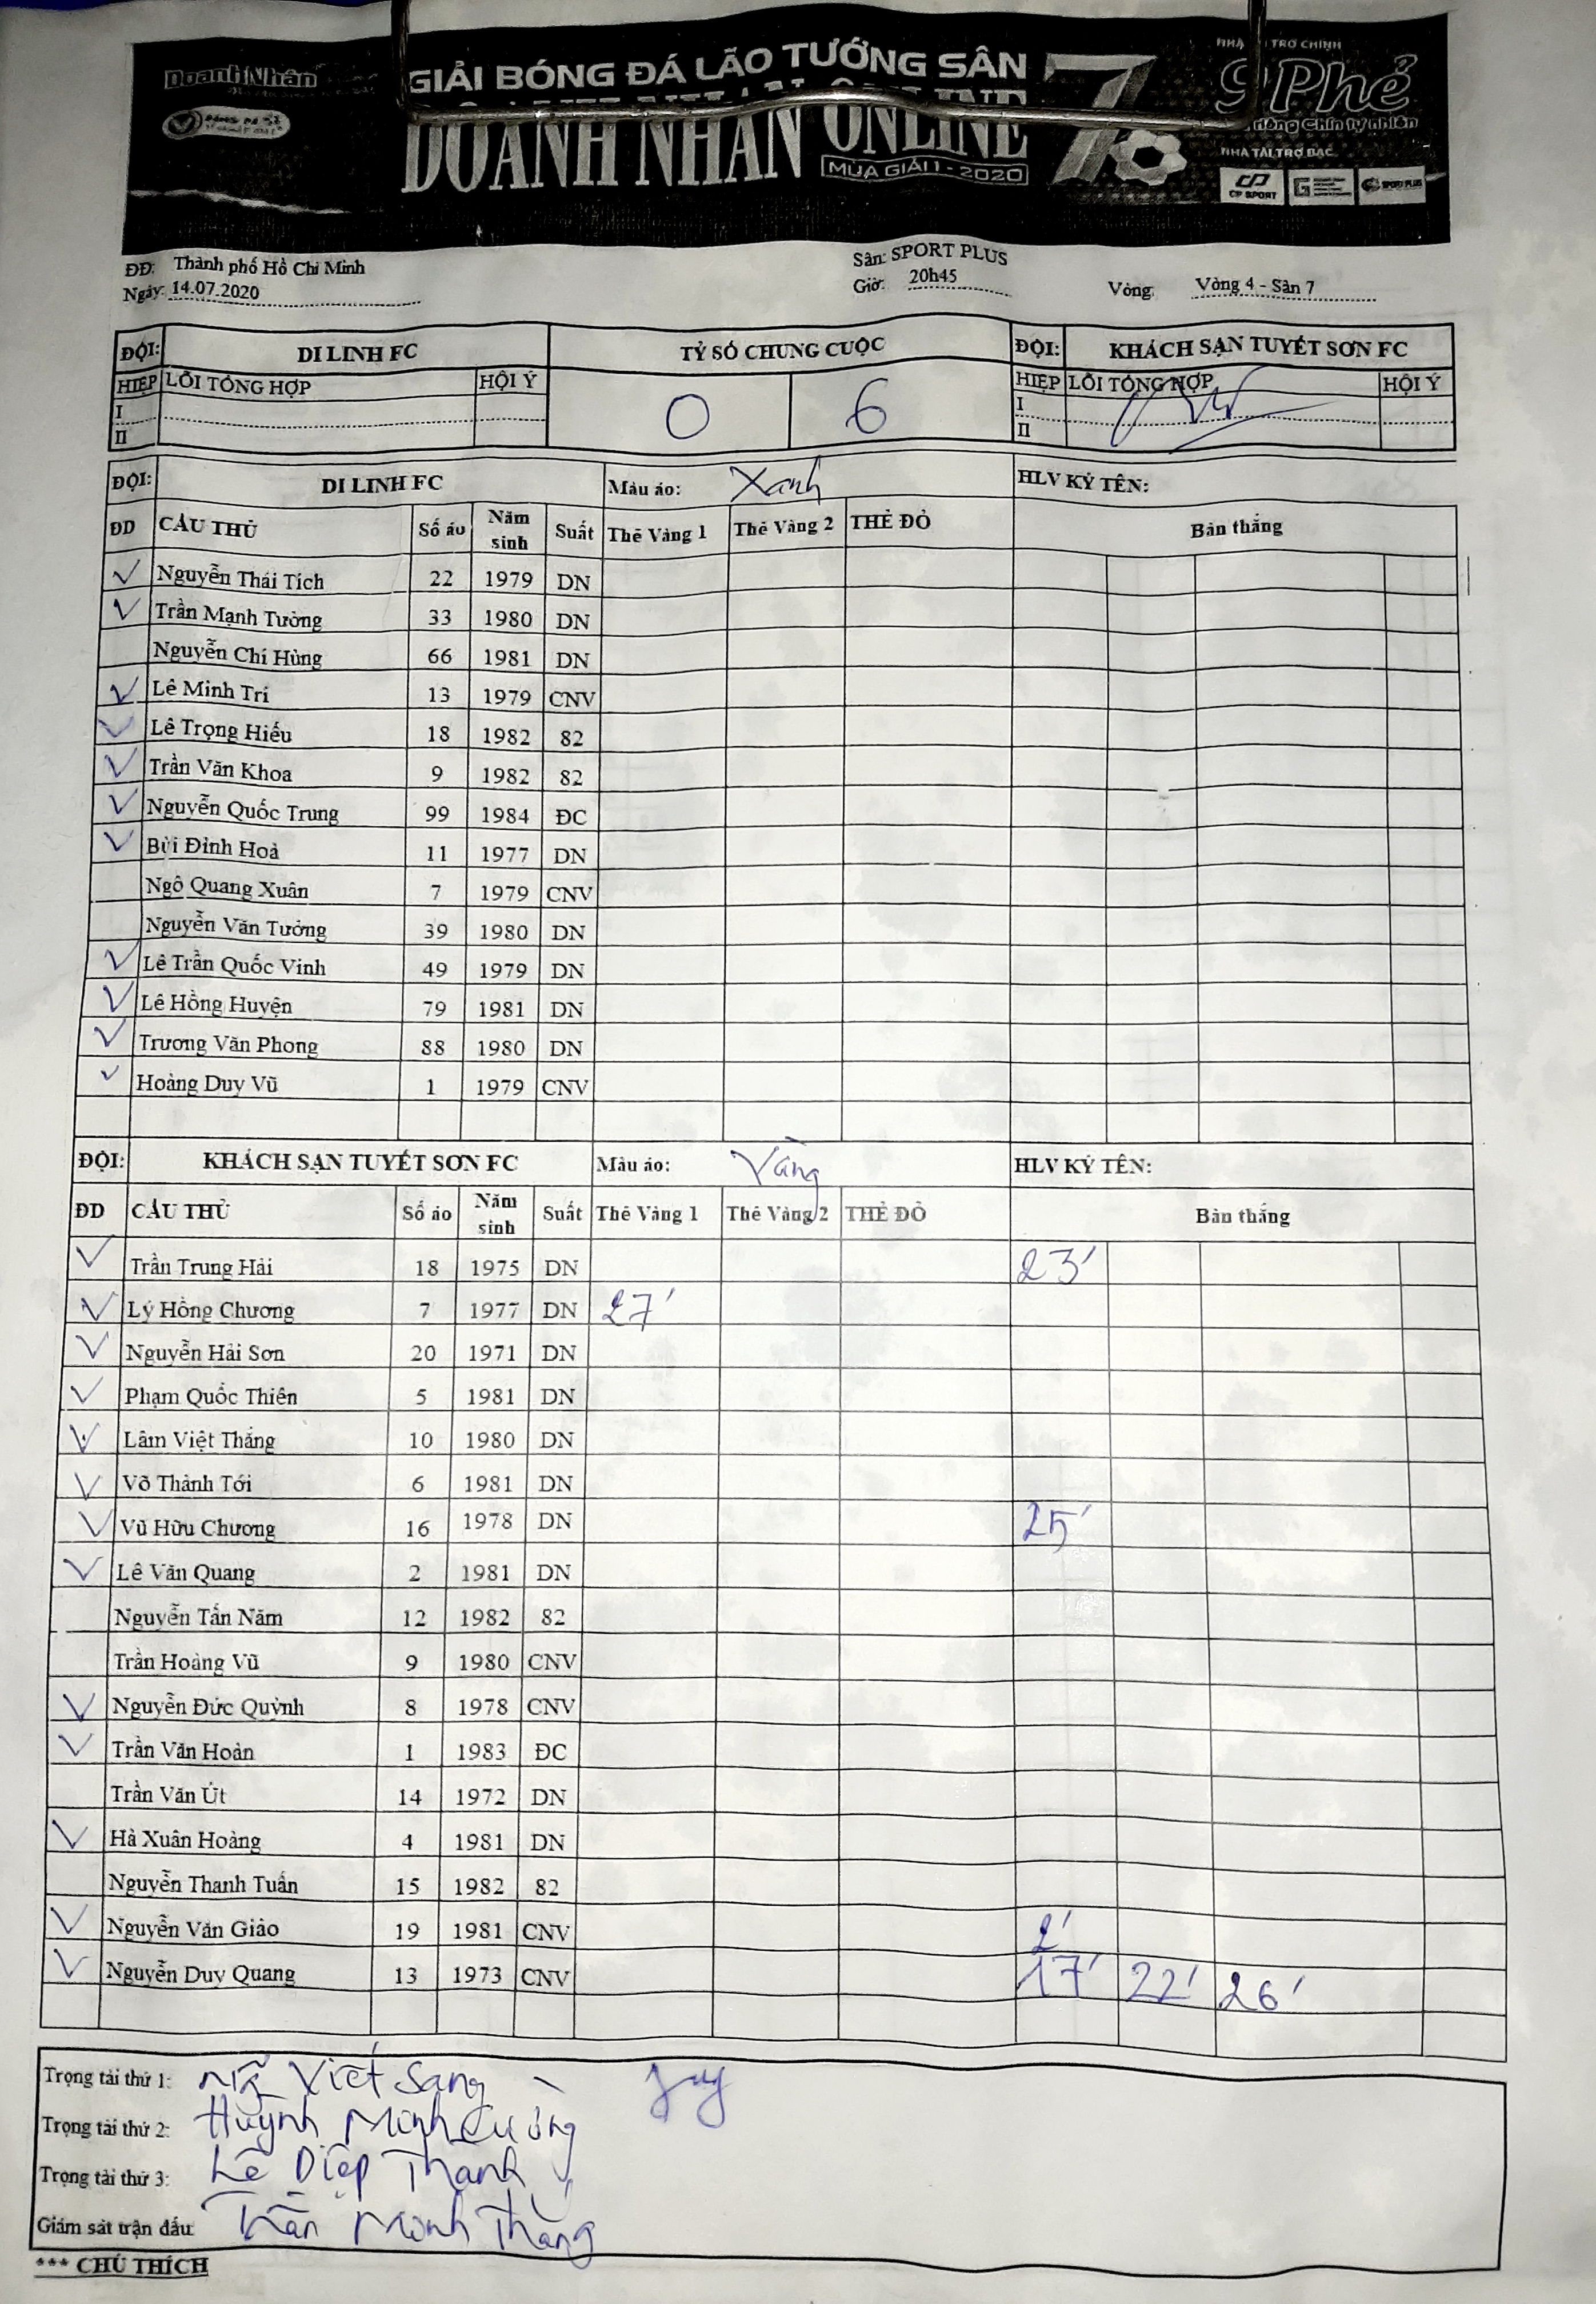 Doanh Nhân
GIẢI BÓNG ĐÁ LÃO TƯỚNG SÂN 7
DOANH NHÂN ONLINE
MÙA GIẢI 1 - 2020
NHÀ TÀI TRỢ CHÍNH
9 Phẻ
NHÀ TÀI TRỢ BẠC
CP SPORT
SPORT PLUS
ĐĐ: Thành phố Hồ Chí Minh Sân: SPORT PLUS
Ngày: 14.07.2020 Giờ: 20h45 Vòng: Vòng 4 - Sân 7
ĐỘI: DI LINH FC TỶ SỐ CHUNG CUỘC ĐỘI: KHÁCH SẠN TUYẾT SƠN FC
HIỆP LỖI TỔNG HỢP HỘI Ý 0 6 HIỆP LỖI TỔNG HỢP HỘI Ý
I I
II II
ĐỘI: DI LINH FC Màu áo: Xanh HLV KÝ TÊN:
ĐD CẦU THỦ Số áo Năm sinh Suất Thẻ Vàng 1 Thẻ Vàng 2 THẺ ĐỎ Bàn thắng
✓ Nguyễn Thái Tích 22 1979 DN
✓ Trần Mạnh Tường 33 1980 DN
Nguyễn Chí Hùng 66 1981 DN
✓ Lê Minh Trí 13 1979 CNV
✓ Lê Trọng Hiếu 18 1982 82
✓ Trần Văn Khoa 9 1982 82
✓ Nguyễn Quốc Trung 99 1984 ĐC
✓ Bùi Đình Hoà 11 1977 DN
Ngô Quang Xuân 7 1979 CNV
Nguyễn Văn Tưởng 39 1980 DN
✓ Lê Trần Quốc Vinh 49 1979 DN
✓ Lê Hồng Huyện 79 1981 DN
✓ Trương Văn Phong 88 1980 DN
✓ Hoàng Duy Vũ 1 1979 CNV
ĐỘI: KHÁCH SẠN TUYẾT SƠN FC Màu áo: Vàng HLV KÝ TÊN:
ĐD CẦU THỦ Số áo Năm sinh Suất Thẻ Vàng 1 Thẻ Vàng 2 THẺ ĐỎ Bàn thắng
✓ Trần Trung Hải 18 1975 DN 23'
✓ Lý Hồng Chương 7 1977 DN 27'
✓ Nguyễn Hải Sơn 20 1971 DN
✓ Phạm Quốc Thiên 5 1981 DN
✓ Lâm Việt Thắng 10 1980 DN
✓ Võ Thành Tới 6 1981 DN
✓ Vũ Hữu Chương 16 1978 DN 25'
✓ Lê Văn Quang 2 1981 DN
Nguyễn Tấn Năm 12 1982 82
Trần Hoàng Vũ 9 1980 CNV
✓ Nguyễn Đức Quỳnh 8 1978 CNV
✓ Trần Văn Hoàn 1 1983 ĐC
Trần Văn Út 14 1972 DN
✓ Hà Xuân Hoàng 4 1981 DN
Nguyễn Thanh Tuấn 15 1982 82
✓ Nguyễn Văn Giào 19 1981 CNV 2'
✓ Nguyễn Duy Quang 13 1973 CNV 17' 22' 26'
Trọng tài thứ 1: Viết Sang
Trọng tài thứ 2: Huỳnh Minh Cường
Trọng tài thứ 3: Lê Diệp Thanh
Giám sát trận đấu: Trần Minh Thắng
*** CHÚ THÍCH